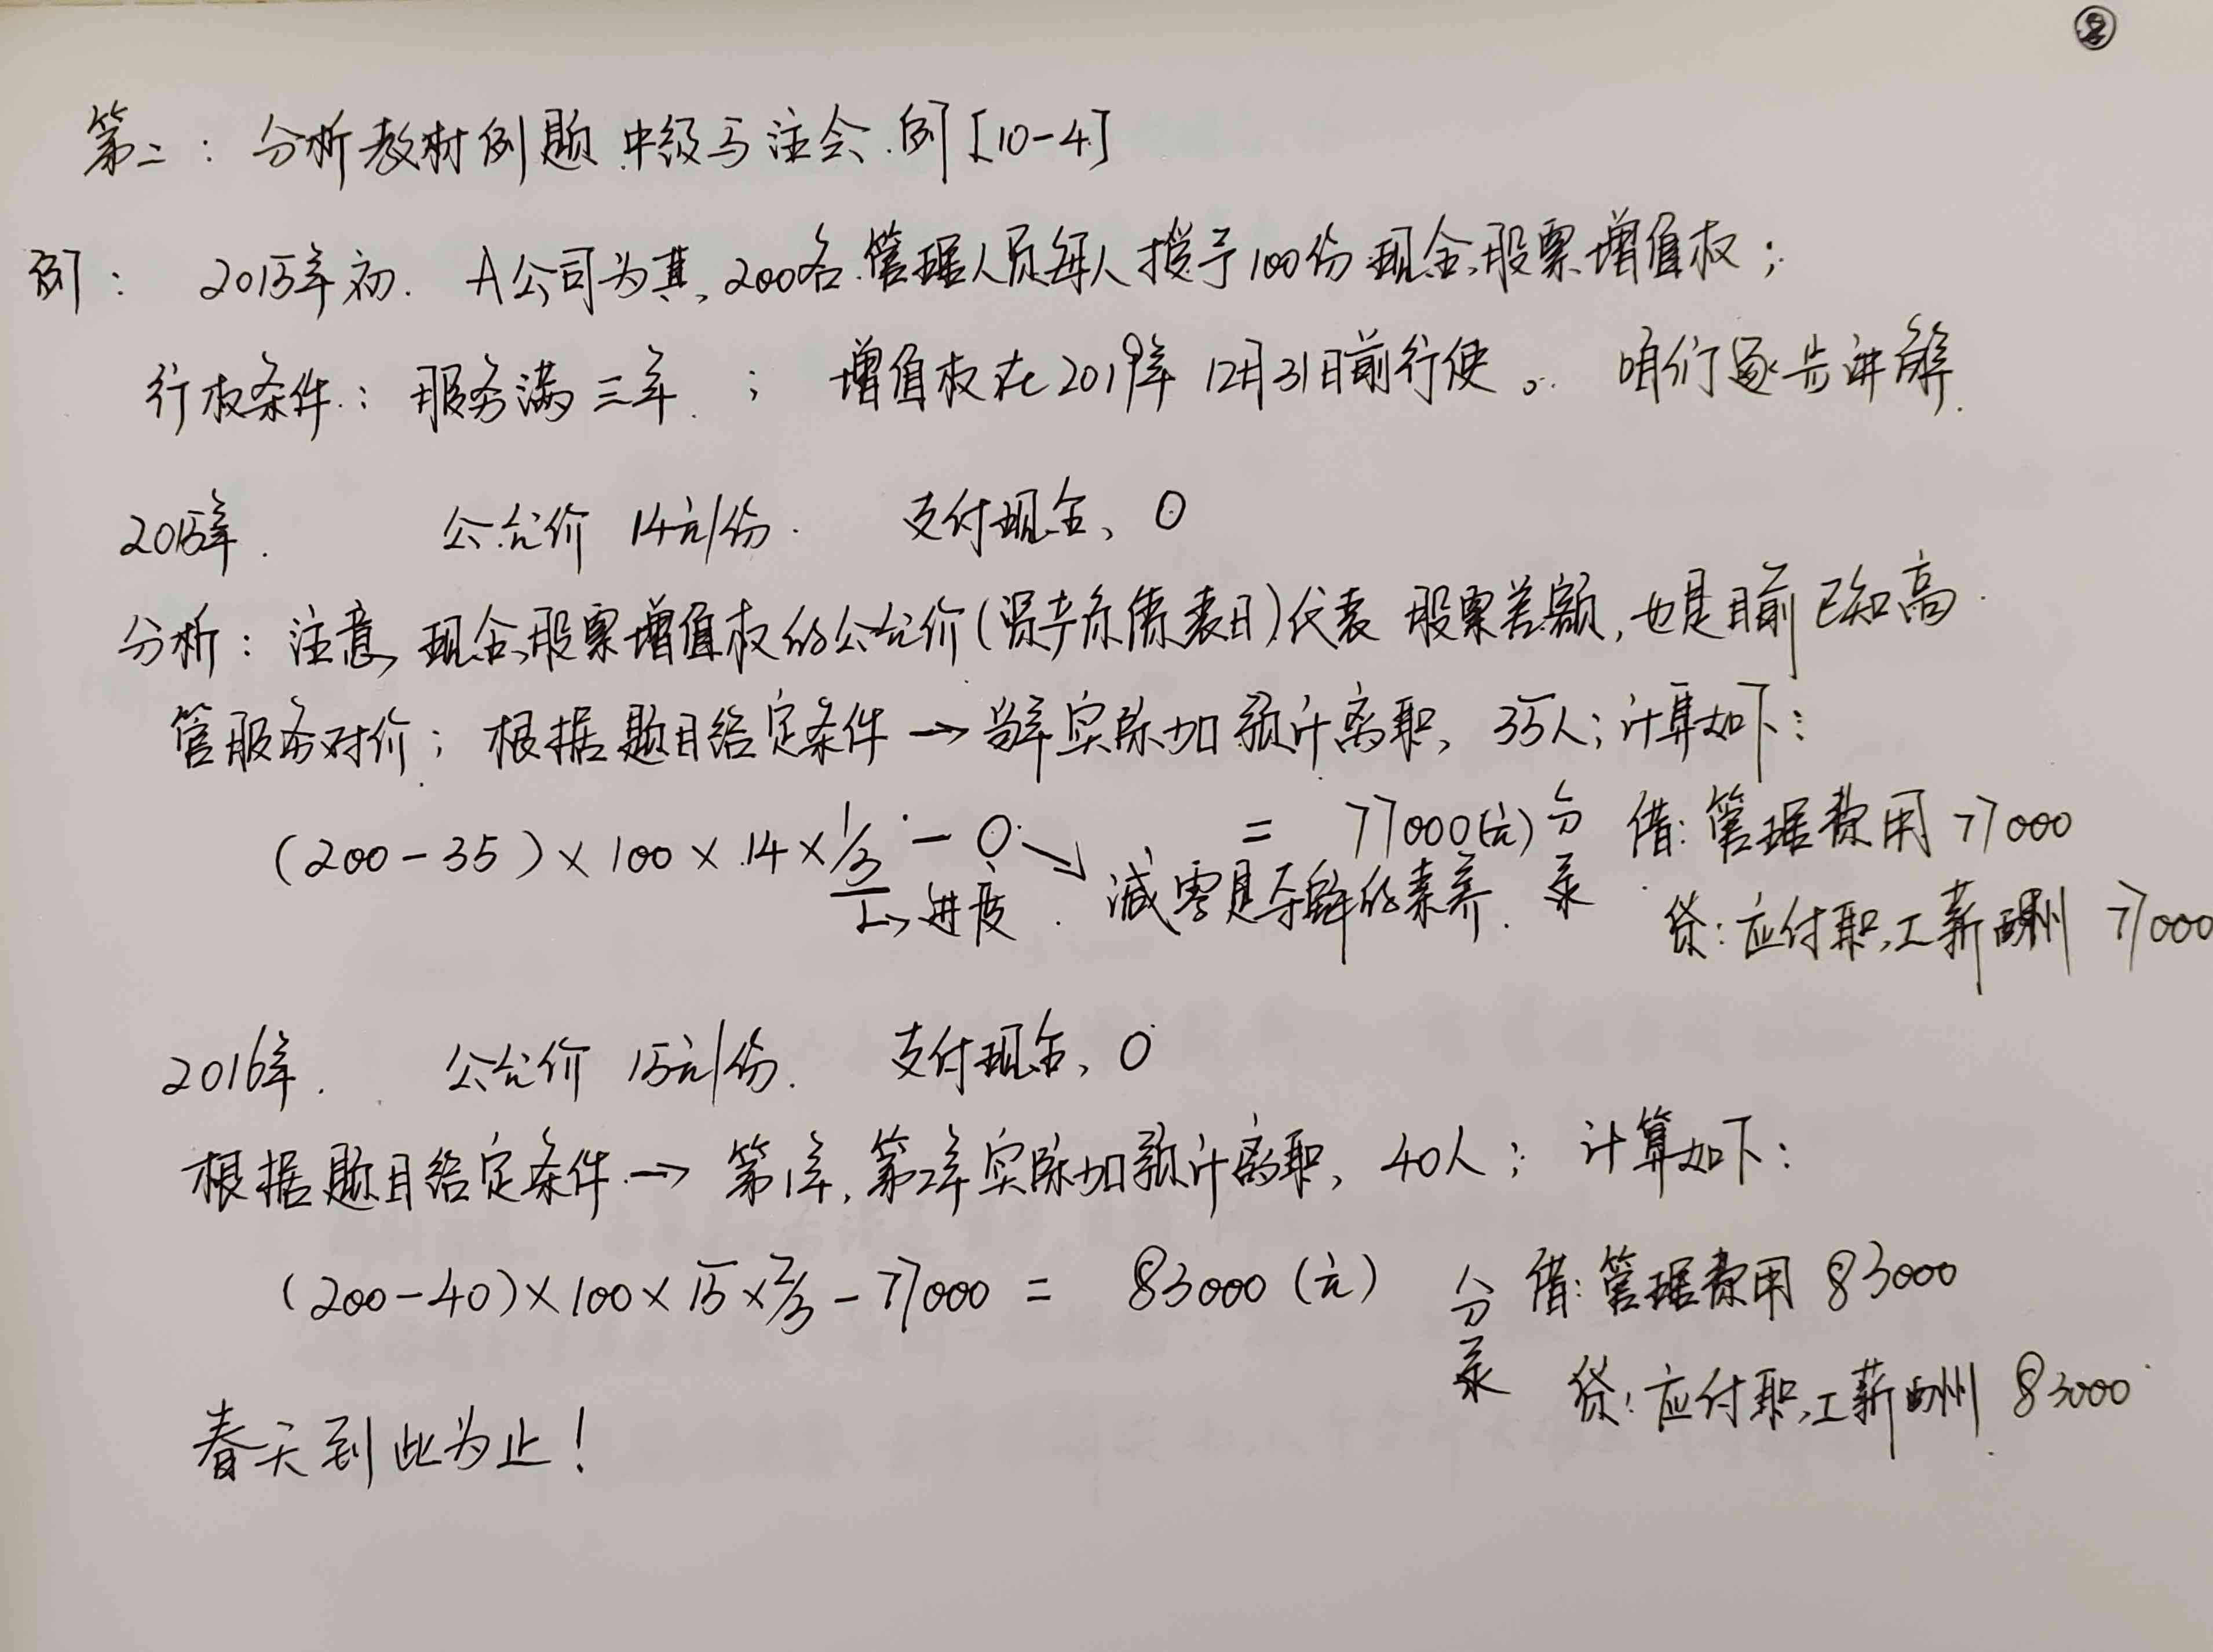 ②
第二：分析教材例题 中级与注会 例[10-4]
例： 2015年初. A公司为其 200名管理人员每人授予100份现金股票增值权；
行权条件：服务满三年 ； 增值权在2019年12月31日前行使。 咱们逐步讲解.
2015年. 公允价 14元/份. 支付现金 0
分析：注意 现金股票增值权的公允价(资产负债表日)代表 股票差额,也是目前已知高
管服务对价；根据题目给定条件→当年实际加预计离职 35人；计算如下：
(200-35)×100×14×1/3 - 0 = 77000(元) 分录 借:管理费用 77000
↳进度. ↘减零是 的素养. 贷:应付职工薪酬 77000
2016年. 公允价 15元/份. 支付现金 0
根据题目给定条件→第1年,第2年实际加预计离职 40人； 计算如下：
(200-40)×100×15×2/3-77000 = 83000(元) 分录 借:管理费用 83000
贷:应付职工薪酬 83000
春天到此为止！